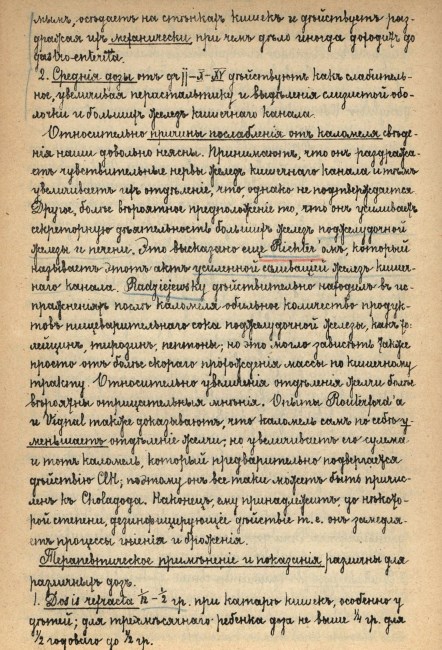 мымъ, осѣдаетъ на стѣнкахъ кишекъ и дѣйствуетъ раз-
дражая ихъ механически, при чемъ дѣло иногда доходитъ до
gastro-enterita.
2. Среднія дозы отъ gr II–X–XV дѣйствуютъ какъ слабитель-
ное, увеличивая перистальтику и выдѣленія слизистой обо-
лочки и большихъ железъ кишечнаго канала.
Относительно причины послабленія отъ каломеля свѣдѣ-
нія наши довольно неясны. Принимаютъ, что онъ раздража-
етъ чувствительные нервы железъ кишечнаго канала и тѣмъ
увеличиваетъ ихъ отдѣленіе, что однако не подтверждается
Другое, болѣе вѣроятное предположеніе то, что онъ усиливаетъ
секреторную дѣятельность большихъ железъ поджелудочной
железы и печени. Это высказано еще Richter'омъ, который
называетъ этотъ актъ усиленной саливаціей железъ кишеч-
наго канала. Radziejewsky дѣйствительно находилъ въ ис-
пражненіяхъ послѣ каломеля обильное количество продук-
товъ пищеварительнаго сока поджелудочной железы, какъ то:
лейцинъ, тирозинъ, пептоны; но это могло зависѣть также
просто отъ болѣе скораго прохожденія массы по кишечному
тракту. Относительно увеличенія отдѣленія желчи болѣе
вѣроятны отрицательныя мнѣнія. Опыты Routerford'а
и Vignal также доказываютъ, что каломель самъ по себѣ у-
меньшаетъ отдѣленіе желчи; но увеличиваетъ его сулема
и тотъ каломель, который предварительно подвергается
дѣйствію ClH; поэтому онъ все таки можетъ быть причис-
ленъ къ Cholagoga. Наконецъ ему принадлежитъ, до нѣкото-
рой степени, дезинфицирующее дѣйствіе т. е. онъ замедля-
етъ процессы гніенія и броженія.
Терапевтическое примѣненіе и показанія различны для
различныхъ дозъ.
1. Dosis refracta 1/12 – 1/2 гр. при катаррѣ кишекъ, особенно у
дѣтей; для трехмѣсячнаго ребенка доза не выше 1/4 гр. для
1/2 годоваго до 1/2 гр.